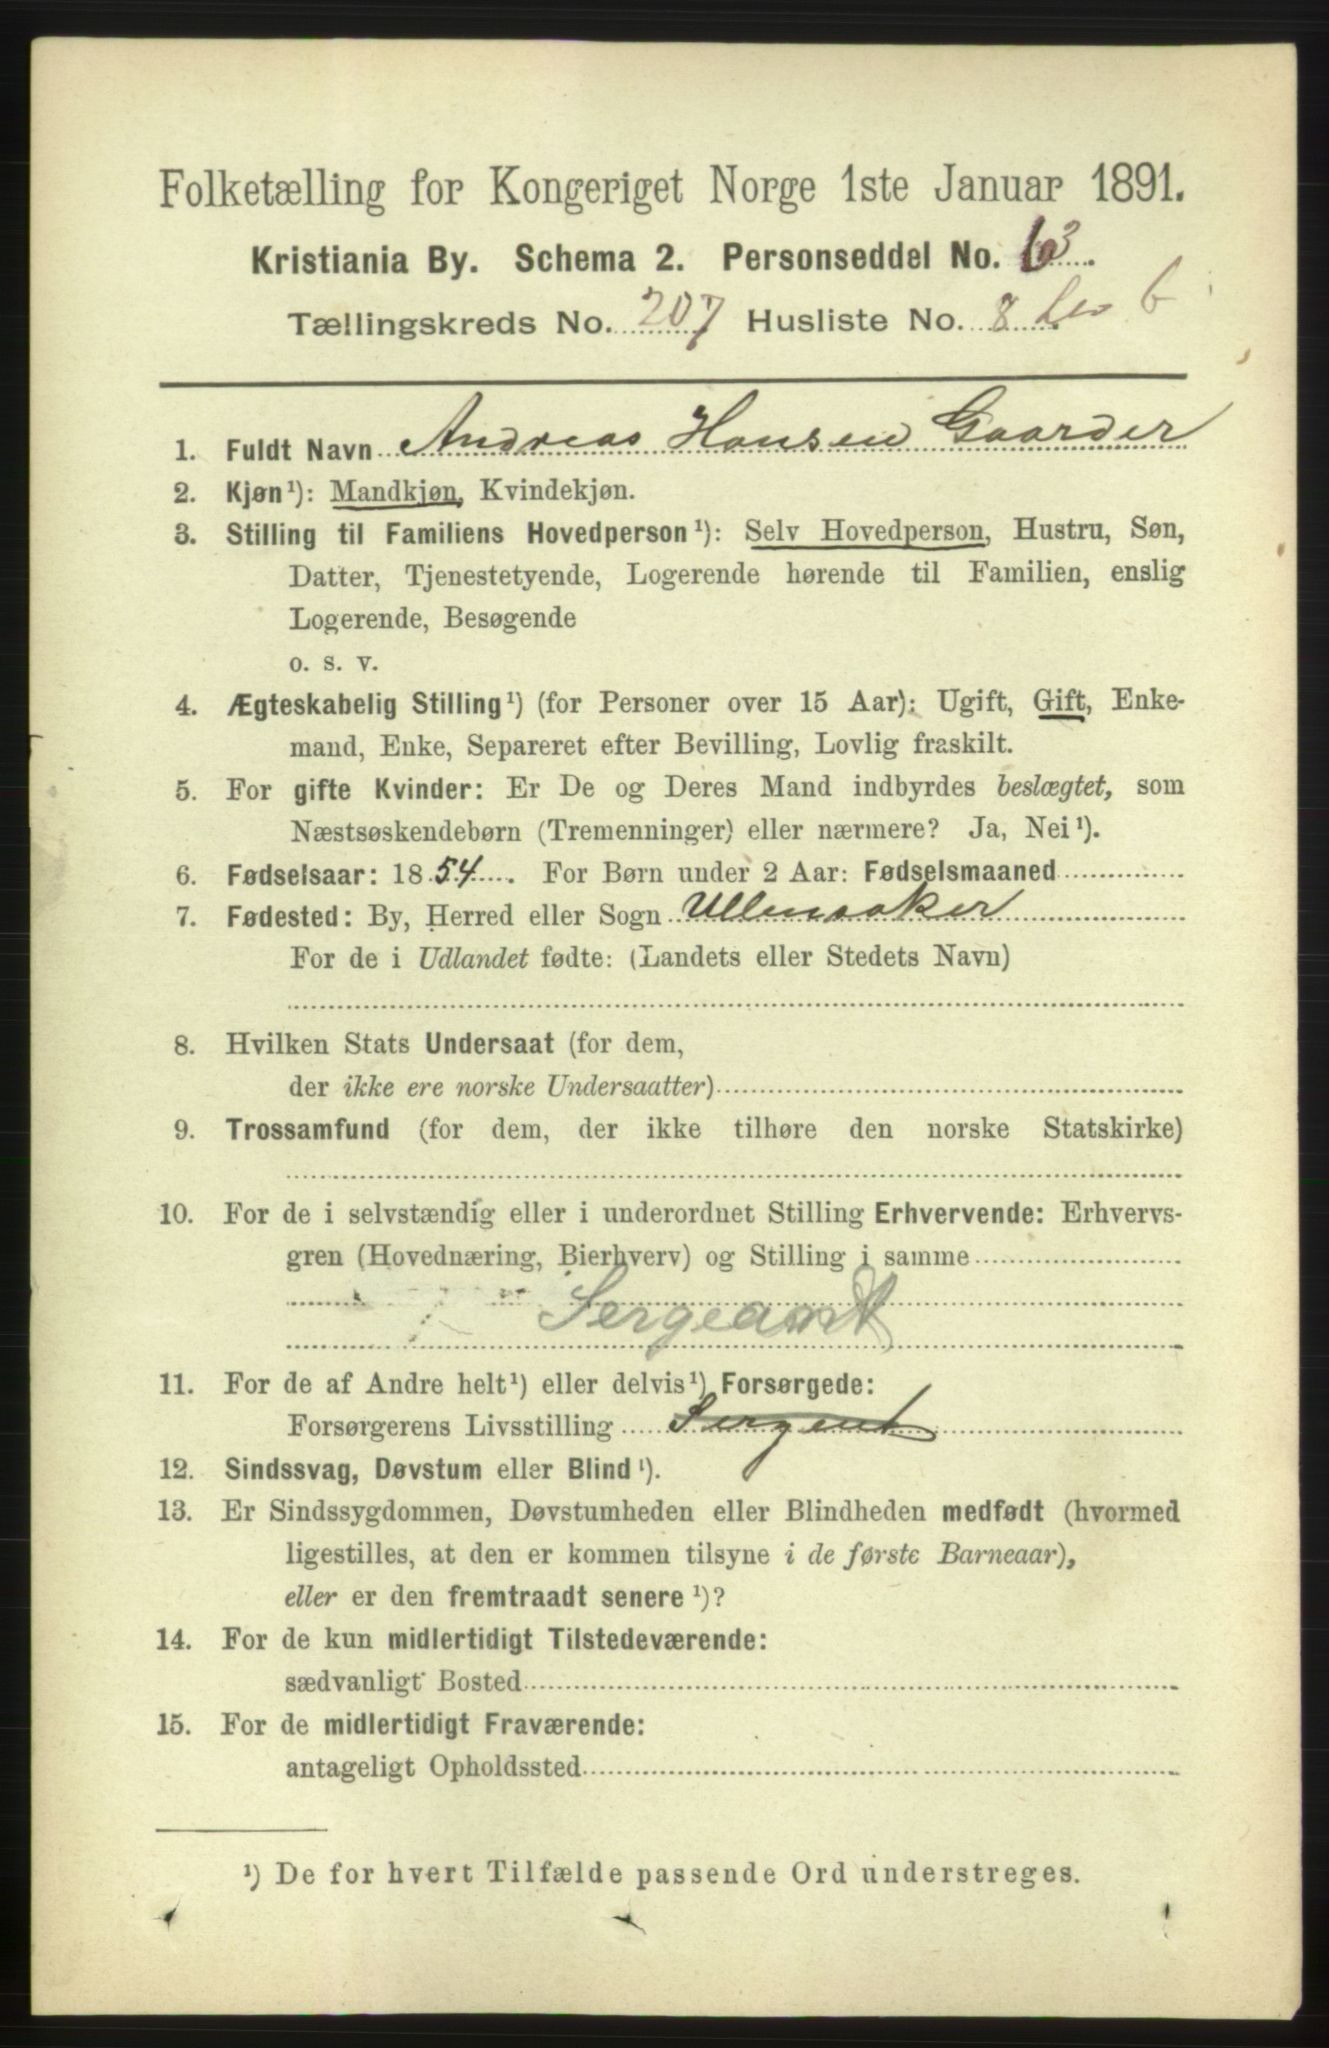 Folketælling for Kongeriget Norge 1ste Januar 1891.
Kristiania By. Schema 2. Personseddel No. 63
Tællingskreds No. 207 Husliste No. 8 Lev 6
1. Fuldt Navn Andreas Hansen Gaarder
2. Kjøn¹): Mandkjøn, Kvindekjøn.
3. Stilling til Familiens Hovedperson¹): Selv Hovedperson, Hustru, Søn,
Datter, Tjenestetyende, Logerende hørende til Familien, enslig
Logerende, Besøgende
o. s. v.
4. Ægteskabelig Stilling¹) (for Personer over 15 Aar): Ugift, Gift, Enke-
mand, Enke, Separeret efter Bevilling, Lovlig fraskilt.
5. For gifte Kvinder: Er De og Deres Mand indbyrdes beslægtet, som
Næstsøskendebørn (Tremenninger) eller nærmere? Ja, Nei¹).
6. Fødselsaar: 1854. For Børn under 2 Aar: Fødselsmaaned
7. Fødested: By, Herred eller Sogn Ullensaker
For de i Udlandet fødte: (Landets eller Stedets Navn)
8. Hvilken Stats Undersaat (for dem,
der ikke ere norske Undersaatter)
9. Trossamfund (for dem, der ikke tilhøre den norske Statskirke)
10. For de i selvstændig eller i underordnet Stilling Erhvervende: Erhvervs-
gren (Hovednæring, Bierhverv) og Stilling i samme
Sergeant
11. For de af Andre helt¹) eller delvis¹) Forsørgede:
Forsørgerens Livsstilling Sergent
12. Sindssvag, Døvstum eller Blind¹).
13. Er Sindssygdommen, Døvstumheden eller Blindheden medfødt (hvormed
ligestilles, at den er kommen tilsyne i de første Barneaar),
eller er den fremtraadt senere¹)?
14. For de kun midlertidigt Tilstedeværende:
sædvanligt Bosted
15. For de midlertidigt Fraværende:
antageligt Opholdssted
¹) De for hvert Tilfælde passende Ord understreges.